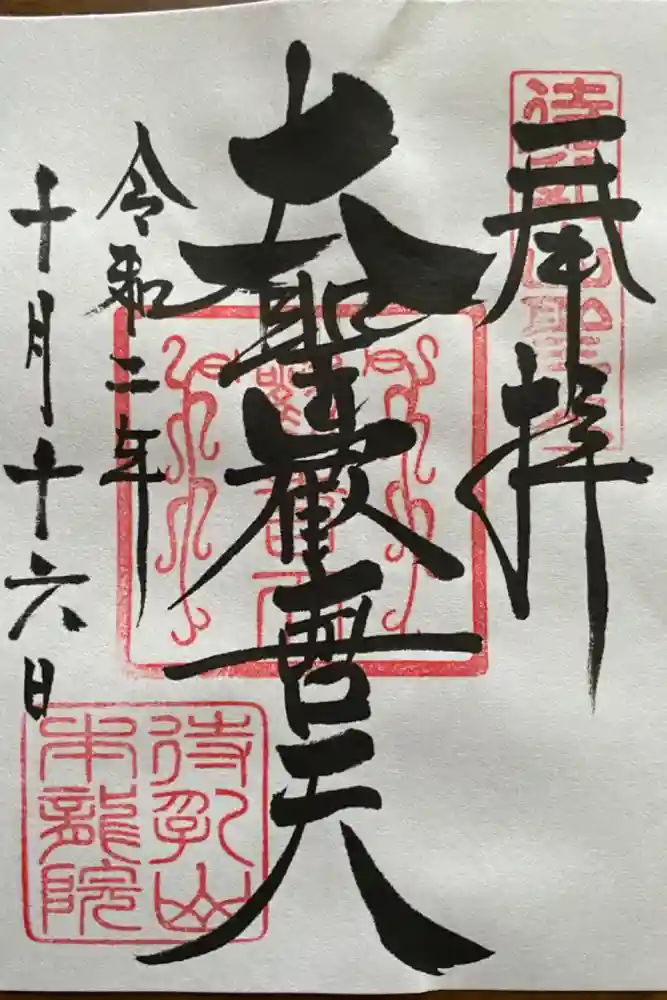 奉拝
大聖歓喜天
令和二年
十月十六日
待乳山
本龍院